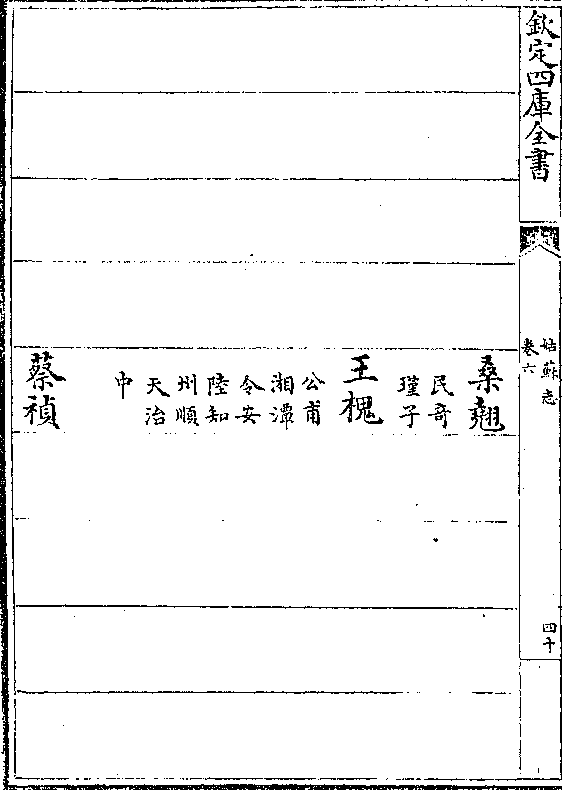 欽定四庫全書
姑蘇志
卷六
四十
桑翹
民奇
瑾子
王槐
公甫
湘潭
令安
陸知
州順
天治
中
蔡禎